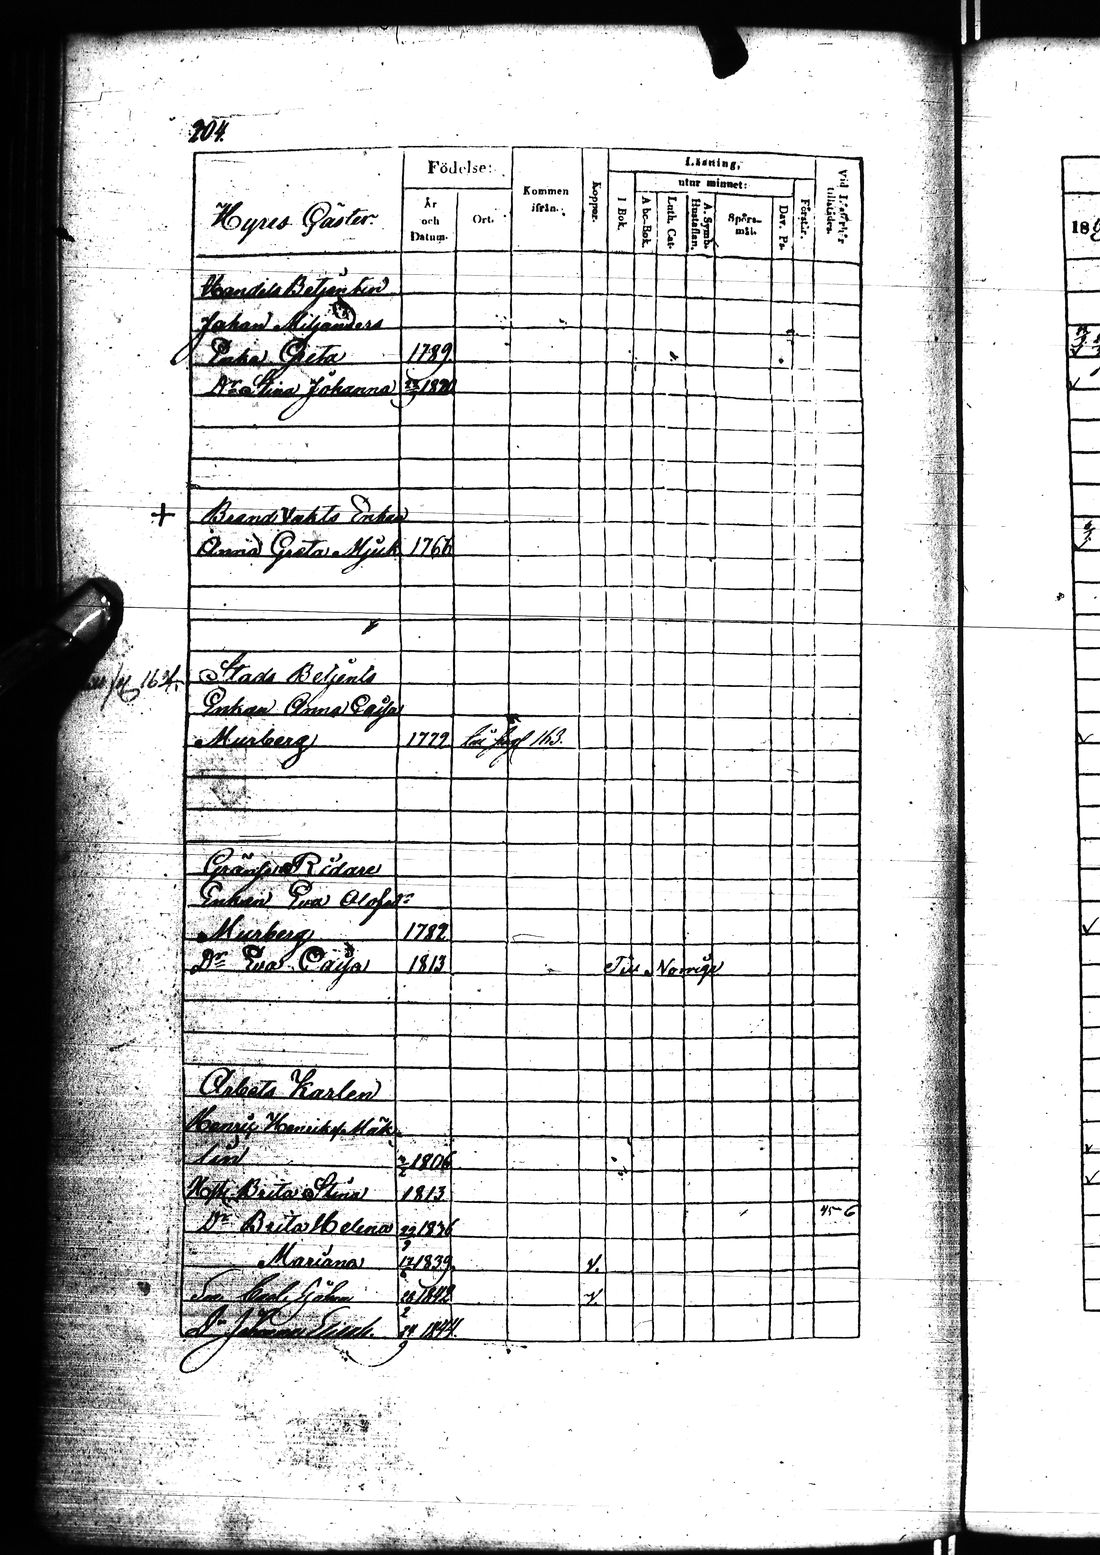 204.
Hyres Gäster.
Födelse:
År och Datum.
Ort.
Kommen ifrån.
Koppor.
Läsning,
utur minnet:
I Bok.
Abc-Bok.
Luth. Cat.
A. Symb. Hustaflan.
Spörsmål.
Dav. Ps.
Förstår.
Vid Läsförhör tillstädes.
18
Handels Betjenten
Johan Miljanders
Enka Greta 1789
Dr Stina Johanna 1820
+ Brand Vakts Enkan
Anna Greta Mjuk 1766
Stads Betjents
Enkan Anna Caisa
Murberg 1779 163.
Gräns Ridare
Enkan Eva Olofsdr
Murberg 1782
Dr Eva Caisa 1813 Till Norrige
Arbets Karlen
Henric Henriks. Mäk
lin 1806
Hust. Brita Stina 1813
Dr Brita Helena 1836 45-6
Mariana 17 1839. v.
Son Carl Johan 1842 v.
Dr Johanna 1844.